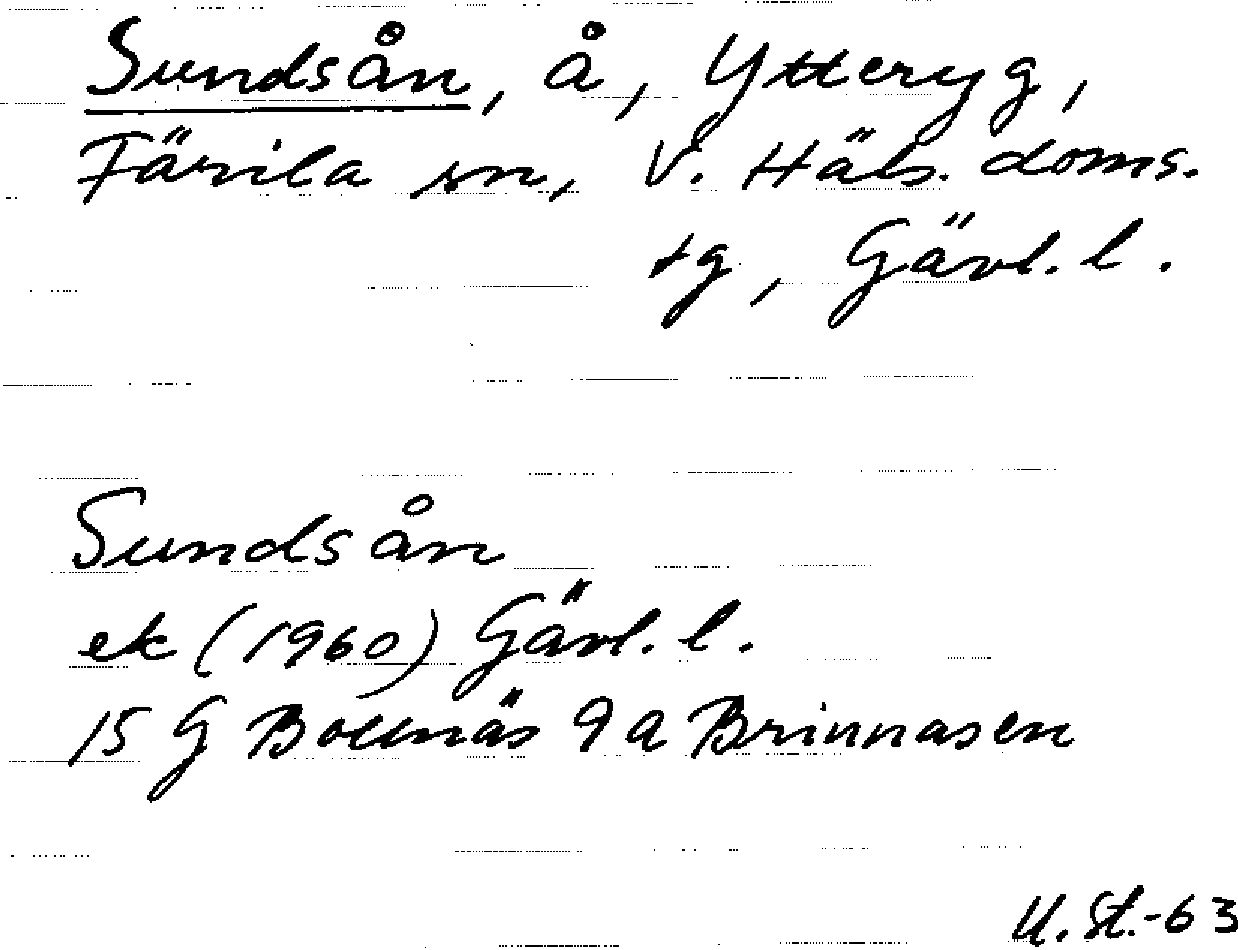 Sundsån, å, Ytteryg,
Färila sn, V. Häls. doms.
tg, Gävl. l.
Sundsån
ek (1960) Gävl. l.
15 G Bollnäs 9a Brinnasen
U. St.-63